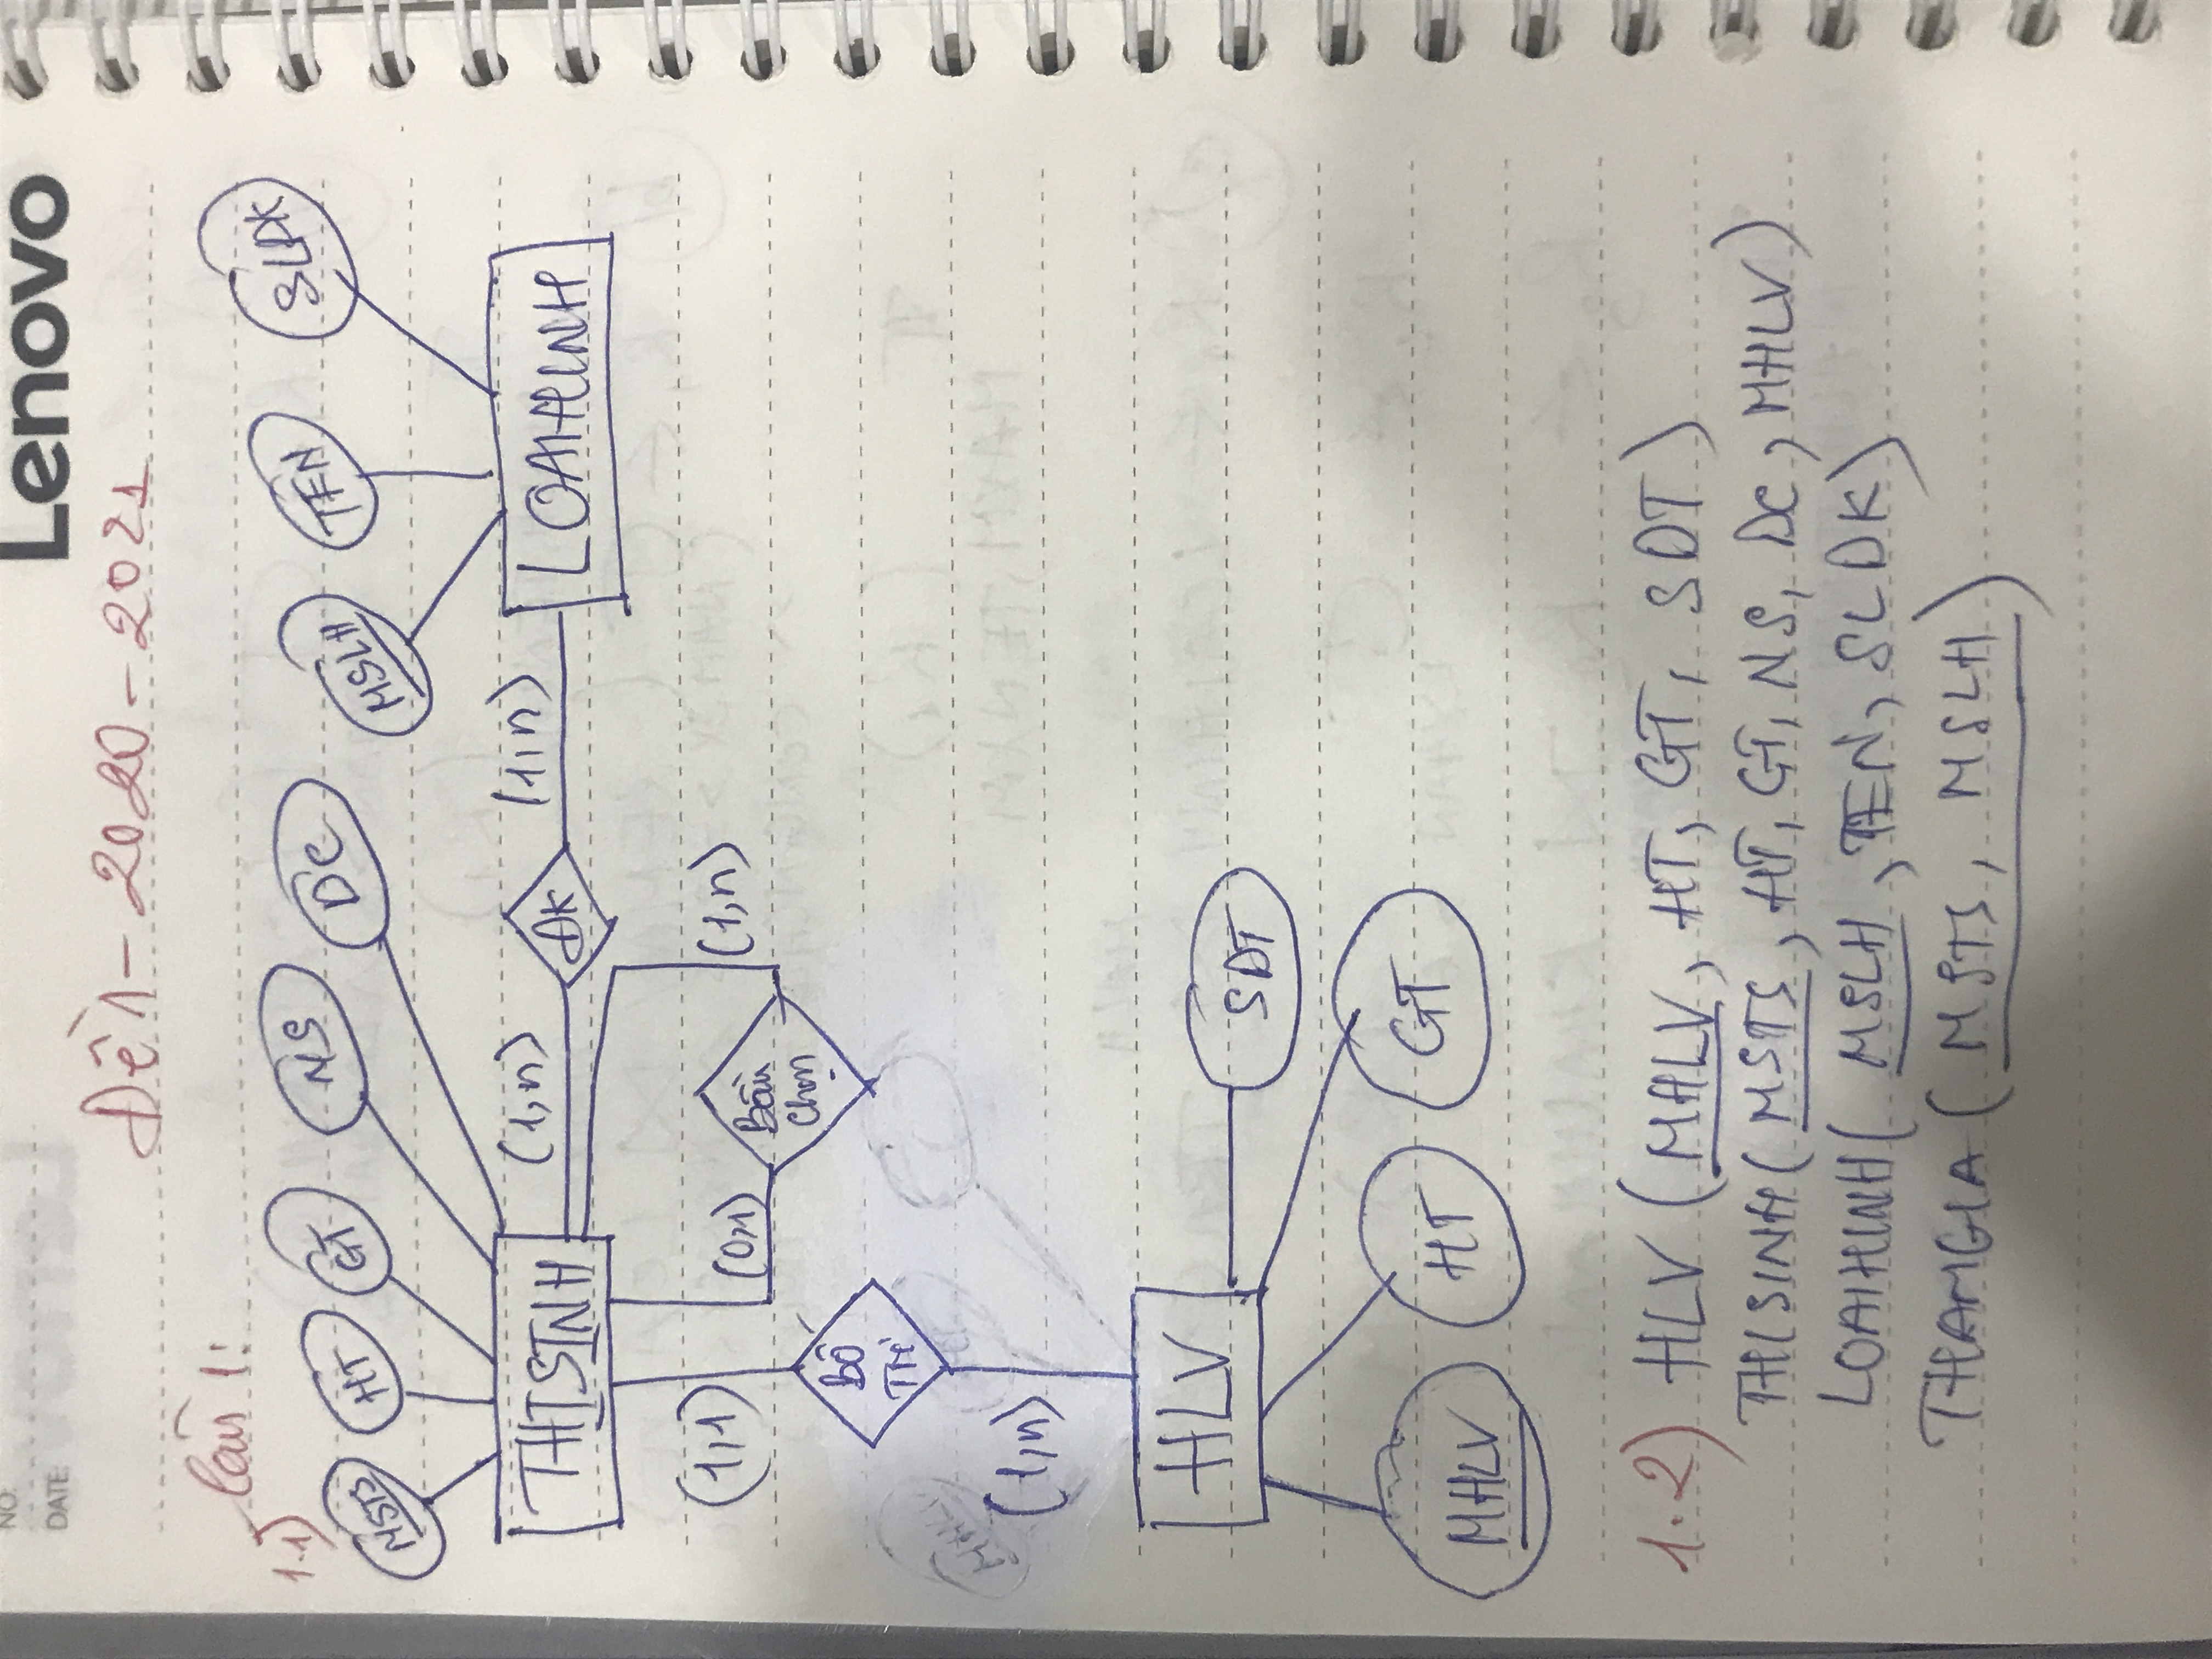 NO:
DATE:
Lenovo
Đề 1 - 2020 - 2021
Câu 1:
1.1)
MSTS HT GT NS DC MSLH TEN SLĐK
THISINH (1,n) ĐK (1,n) LOAIHINH
(1,1) (0,1) Bầu Chọn (1,n)
BỐ TRÍ
MHLV
(1,n)
HLV
SDT
MHLV HT GT
1.2) HLV (MHLV, HT, GT, SDT)
THISINH (MSTS, HT, GT, NS, DC, MHLV)
LOAIHINH (MSLH, TEN, SLDK)
THAMGIA (MSTS, MSLH)